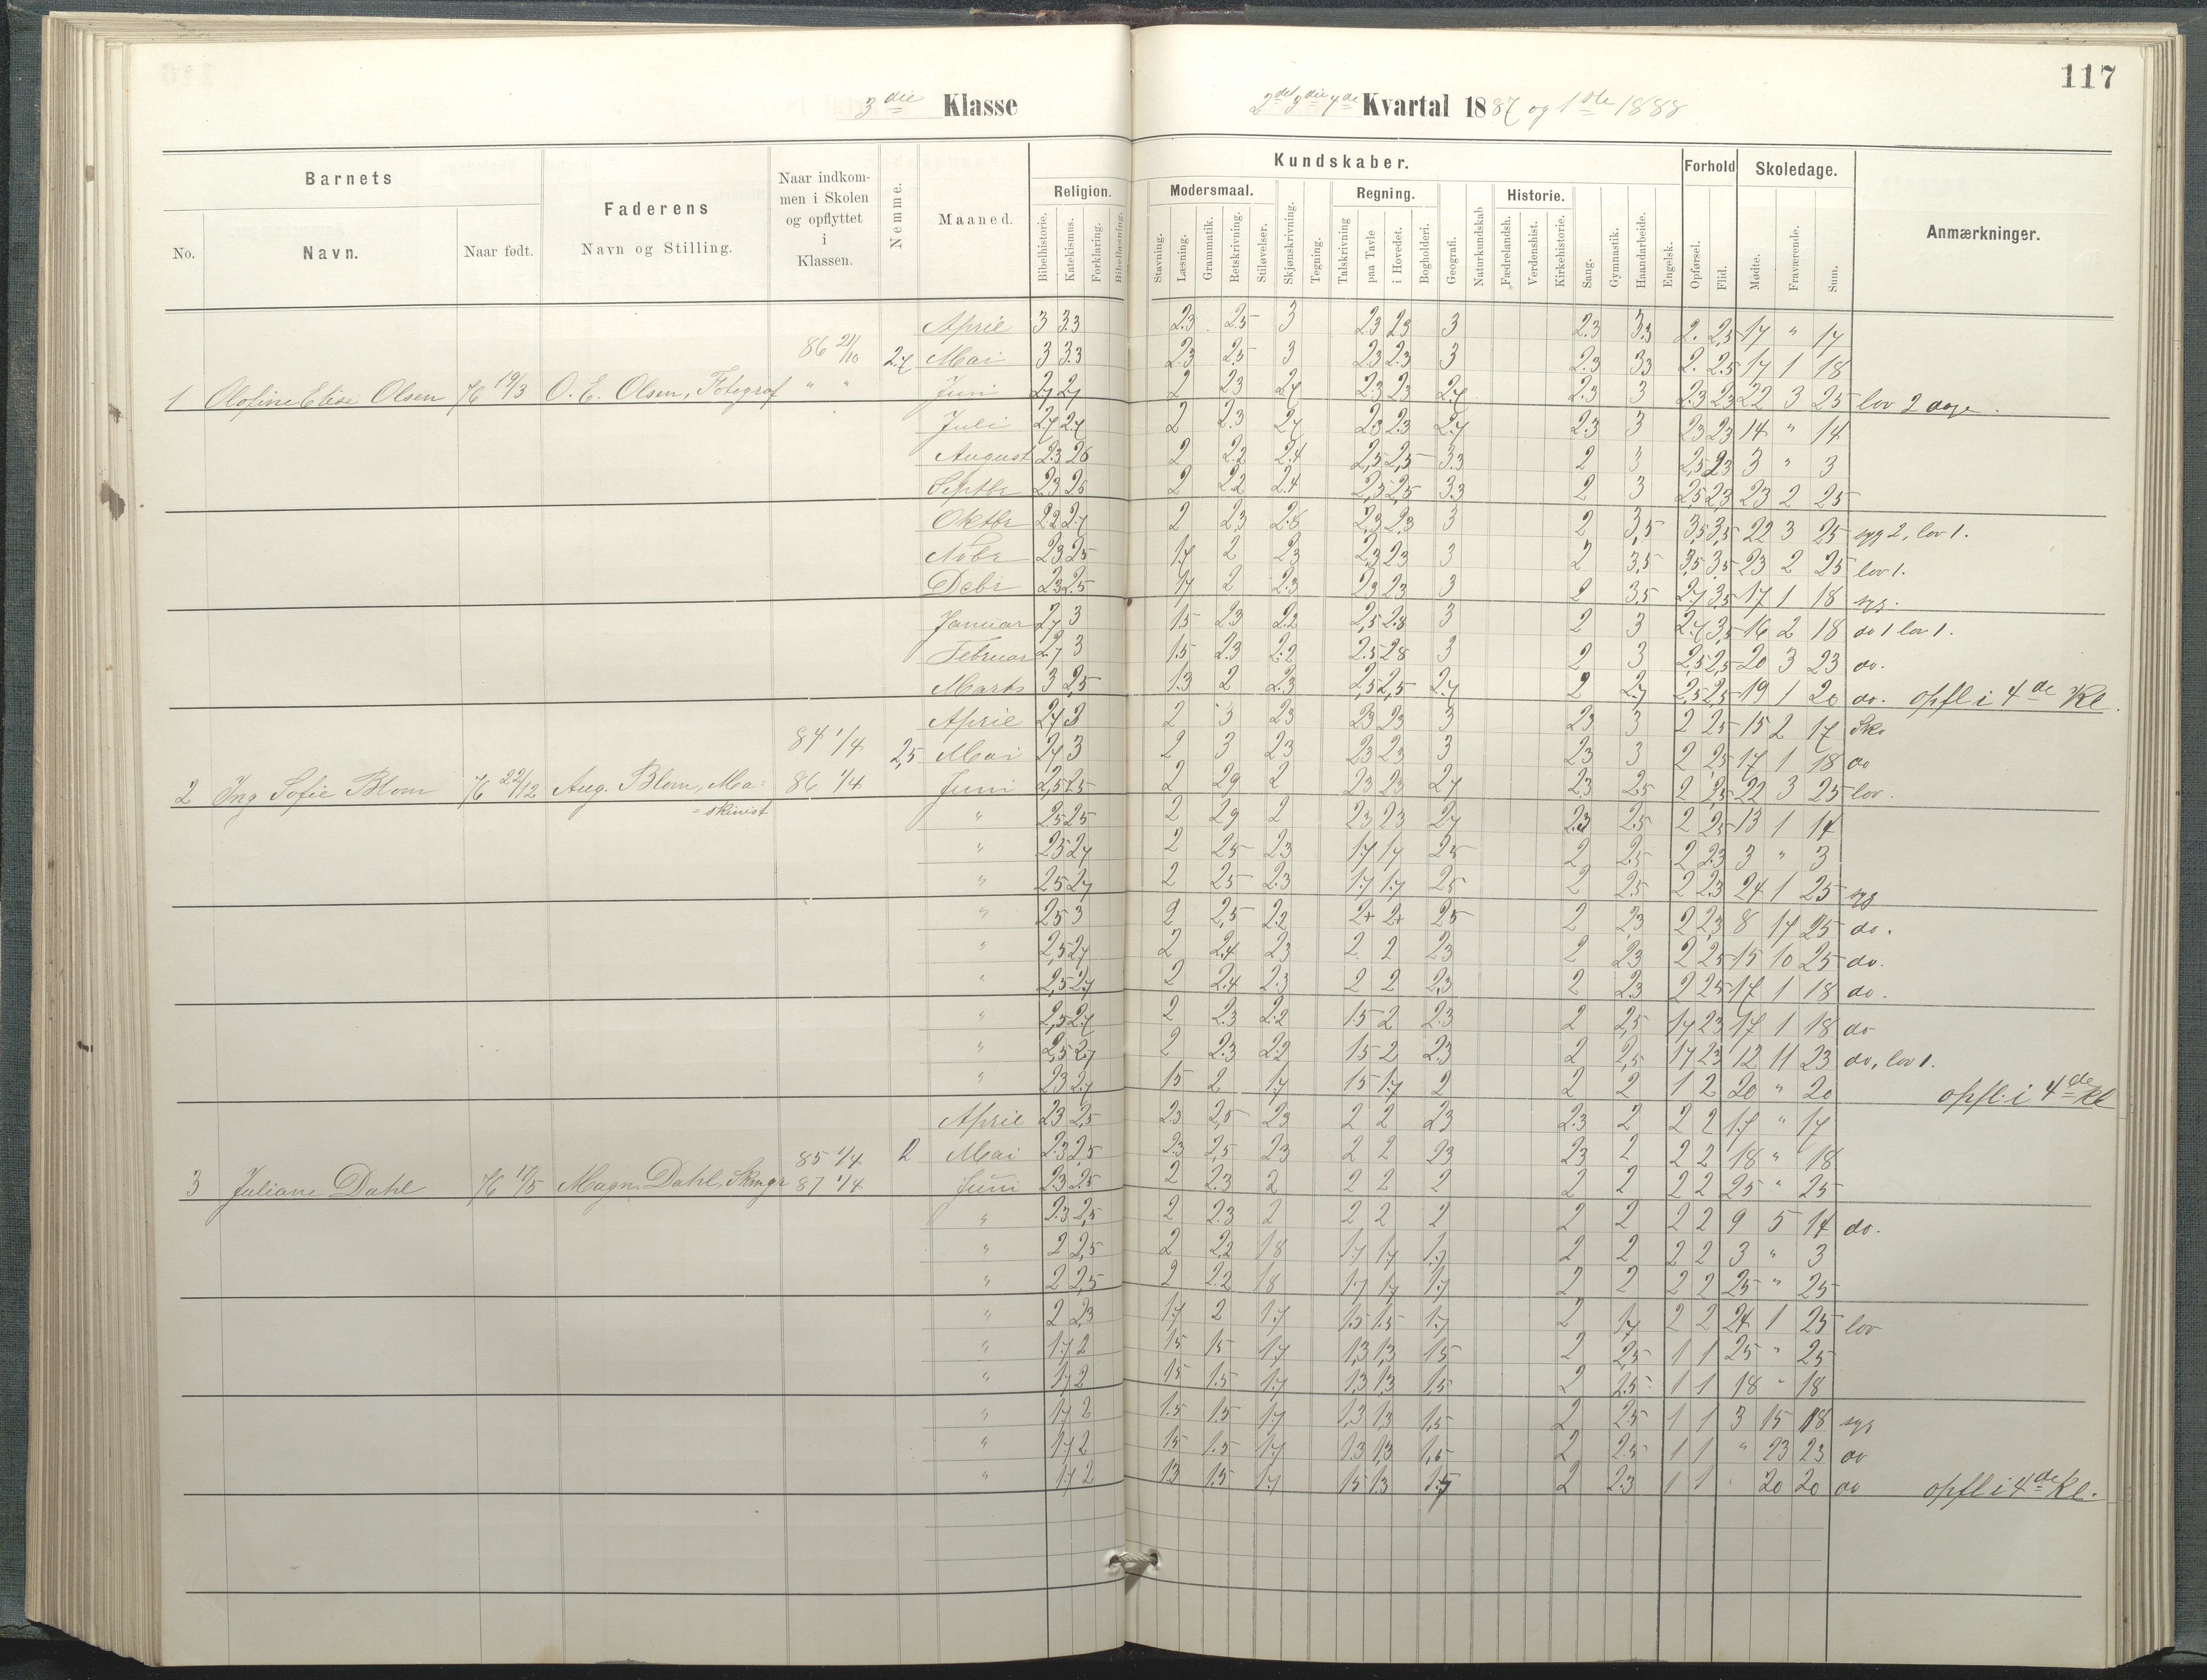 117
3die Klasse
2det 3die 4de Kvartal 1887 og 1ste 1888
Barnets
No.
Navn.
Naar født.
Faderens
Navn og Stilling.
Naar indkom-
men i Skolen
og opflyttet
i
Klassen.
Nemme.
Maaned.
Kundskaber.
Religion.
Bibelhistorie.
Katekismus.
Forklaring.
Bibellæsning.
Modersmaal.
Stavning.
Læsning.
Grammatik.
Retskrivning.
Stiløvelser.
Skjønskrivning.
Tegning.
Regning.
Talskrivning
paa Tavle
i Hovedet.
Bogholderi.
Geografi.
Naturkundskab
Historie.
Fædrelandsh.
Verdenshist.
Kirkehistorie.
Sang.
Gymnastik.
Haandarbeide.
Engelsk.
Forhold
Opførsel.
Flid.
Skoledage.
Mødte.
Fraværende.
Sum.
Anmærkninger.
April 3 3.3 2.3 2.5 3 2.3 2.3 3 2.3 3.3 2. 2.5 17 " 17
86 21/10 2.7 Mai 3 3.3 2.3 2.5 3 2.3 2.3 3 2.3 3.3 2. 2.5 17 1 18
1 Olofine Elise Olsen 76 19/3 O. E. Olsen, Fotograf " " Juni 2.7 2.7 2 2.3 2.7 2.3 2.3 2.7 2.3 3 2.3 2.3 22 3 25 lov 2 dage.
Juli 2.7 2.7 2 2.3 2.7 2.3 2.3 2.7 2.3 3 2.3 2.3 14 " 14
August 2.3 2.6 2 2.2 2.4 2.5 2.5 3.3 2 3 2.5 2.3 3 " 3
Septbr 2.3 2.6 2 2.2 2.4 2.5 2.5 3.3 2 3 2.5 2.3 23 2 25
Oktbr 2.2 2.7 2 2.3 2.8 2.3 2.3 3 2 3.5 3.5 3.5 22 3 25 syg 2, lov 1.
Nobr 2.3 2.5 1.7 2 2.3 2.3 2.3 3 2 3.5 3.5 3.5 23 2 25 lov 1.
Debr 2.3 2.5 1.7 2 2.3 2.3 2.3 3 2 3.5 2.7 3.5 17 1 18 syg.
Januar 2.7 3 1.5 2.3 2.2 2.5 2.8 3 2 3 2.7 3.5 16 2 18 do 1 lov 1.
Februar 2.7 3 1.5 2.3 2.2 2.5 2.8 3 2 3 2.5 2.5 20 3 23 do.
Marts 3 2.5 1.3 2 2.3 2.5 2.5 2.7 2 2.7 2.5 2.5 19 1 20 do. opfl i 4de Kl.
April 2.7 3 2 3 2.3 2.3 2.3 3 2.3 3 2 2.5 15 2 17 Sko
84 1/4 2.5 Mai 2.7 3 2 3 2.3 2.3 2.3 3 2.3 3 2 2.5 17 1 18 do
2 Ing Sofie Blom 76 22/12 Aug. Blom, Ma- 86 1/4 Juni 2.5 2.5 2 2.9 2 2.3 2.3 2.7 2.3 2.5 2 2.5 22 3 25 lov.
=skinist " 2.5 2.5 2 2.9 2 2.3 2.3 2.7 2.3 2.5 2 2.5 13 1 14
" 2.5 2.7 2 2.5 2.3 1.7 1.7 2.5 2 2.5 2 2.3 3 " 3
" 2.5 2.7 2 2.5 2.3 1.7 1.7 2.5 2 2.5 2 2.3 24 1 25 syg
" 2.5 3 2 2.5 2.2 2+ 2+ 2.5 2 2.3 2 2.3 8 17 25 do.
" 2.5 2.7 2 2.4 2.3 2 2 2.3 2 2.3 2 2.5 15 10 25 do.
" 2.5 2.7 2 2.4 2.3 2 2 2.3 2 2.3 2 2.5 17 1 18 do.
" 2.5 2.7 2 2.3 2.2 1.5 2 2.3 2 2.5 1.7 2.3 17 1 18 do
" 2.5 2.7 2 2.3 2.2 1.5 2 2.3 2 2.5 1.7 2.3 12 11 23 do, lov 1.
" 2.3 2.7 1.5 2 1.7 1.5 1.7 2 2 2 1 2 20 " 20 opfl. i 4de Kl
April 2.3 2.5 2.3 2.5 2.3 2 2 2.3 2.3 2 2 2 17 " 17
85 1/4 2 Mai 2.3 2.5 2.3 2.5 2.3 2 2 2.3 2.3 2 2 2 18 " 18
3 Juliane Dahl 76 11/5 Magn. Dahl, Skmgr 87 1/4 Juni 2.3 2.5 2 2.3 2 2 2 2 2 2 2 2 25 " 25
" 2.3 2.5 2 2.3 2 2 2 2 2 2 2 2 9 5 14 do.
" 2 2.5 2 2.2 1.8 1.7 1.7 1.7 2 2 2 2 3 " 3
" 2 2.5 2 2.2 1.8 1.7 1.7 1.7 2 2 2 2 25 " 25
" 2 2.3 1.7 2 1.7 1.5 1.5 1.7 2 1.7 2 2 24 1 25 lov
" 1.7 2 1.5 1.5 1.7 1.3 1.3 1.5 2 2.5 1 1 25 " 25
" 1.7 2 1.5 1.5 1.7 1.3 1.3 1.5 2 2.5 1 1 18 " 18
" 1.7 2 1.5 1.5 1.7 1.3 1.3 1.5 2 2.5 1 1 3 15 18 syg
" 1.7 2 1.5 1.5 1.7 1.3 1.3 1.5 2 2.5 1 1 " 23 23 do
" 1.7 2 1.3 1.5 1.7 1.5 1.3 2 2.3 1 1 20 20 do opfl i 4de Kl.